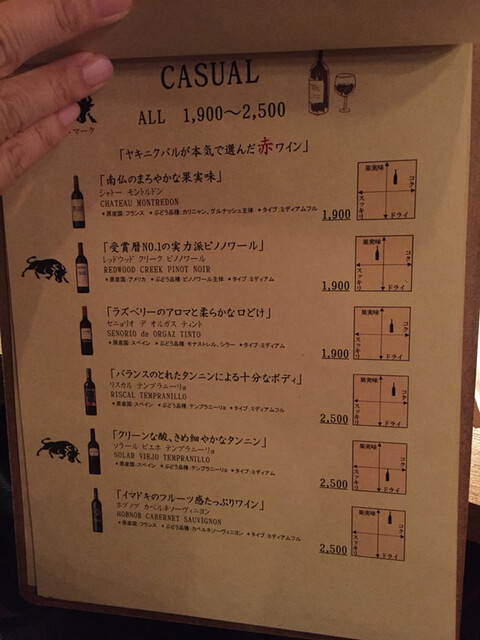 CASUAL
ALL 1,900〜2,500
マーク
「ヤキニクバルが本気で選んだ赤ワイン」
「南仏のまろやかな果実味」
シャトー モントルドン
CHATEAU MONTREDON
★原産国:フランス ★ぶどう品種:カリニャン、グルナッシュ主体 ★タイプ:ミディアムフル
1,900
果実味
コク
スッキリ
ドライ
「受賞暦NO.1の実力派ピノノワール」
レッドウッド クリーク ピノノワール
REDWOOD CREEK PINOT NOIR
★原産国:アメリカ ★ぶどう品種:ピノノワール主体 ★タイプ:ミディアム
1,900
果実味
コク
スッキリ
ドライ
「ラズベリーのアロマと柔らかな口どけ」
セニョリオ デ オルガス ティント
SENORIO de ORGAZ TINTO
★原産国:スペイン ★ぶどう品種:モナストレル、シラー ★タイプ:ミディアムフル
1,900
果実味
コク
スッキリ
ドライ
「バランスのとれたタンニンによる十分なボディ」
リスカル テンプラニーリョ
RISCAL TEMPRANILLO
★原産国:スペイン ★ぶどう品種:テンプラニーリョ ★タイプ:ミディアムフル
2,500
果実味
コク
スッキリ
ドライ
「クリーンな酸、きめ細やかなタンニン」
ソラール ビエホ テンプラニーリョ
SOLAR VIEJO TEMPRANILLO
★原産国:スペイン ★ぶどう品種:テンプラニーリョ ★タイプ:ミディアム
2,500
果実味
コク
スッキリ
ドライ
「イマドキのフルーツ感たっぷりワイン」
ホブノブ カベルネソーヴィニヨン
HOBNOB CABERNET SAUVIGNON
★原産国:フランス ★ぶどう品種:カベルネソーヴィニヨン ★タイプ:ミディアムフル
2,500
果実味
コク
スッキリ
ドライ